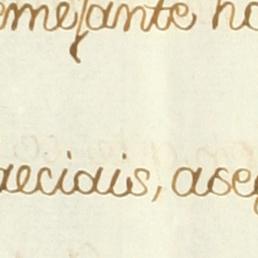 emejante ho
aeciais, aseg